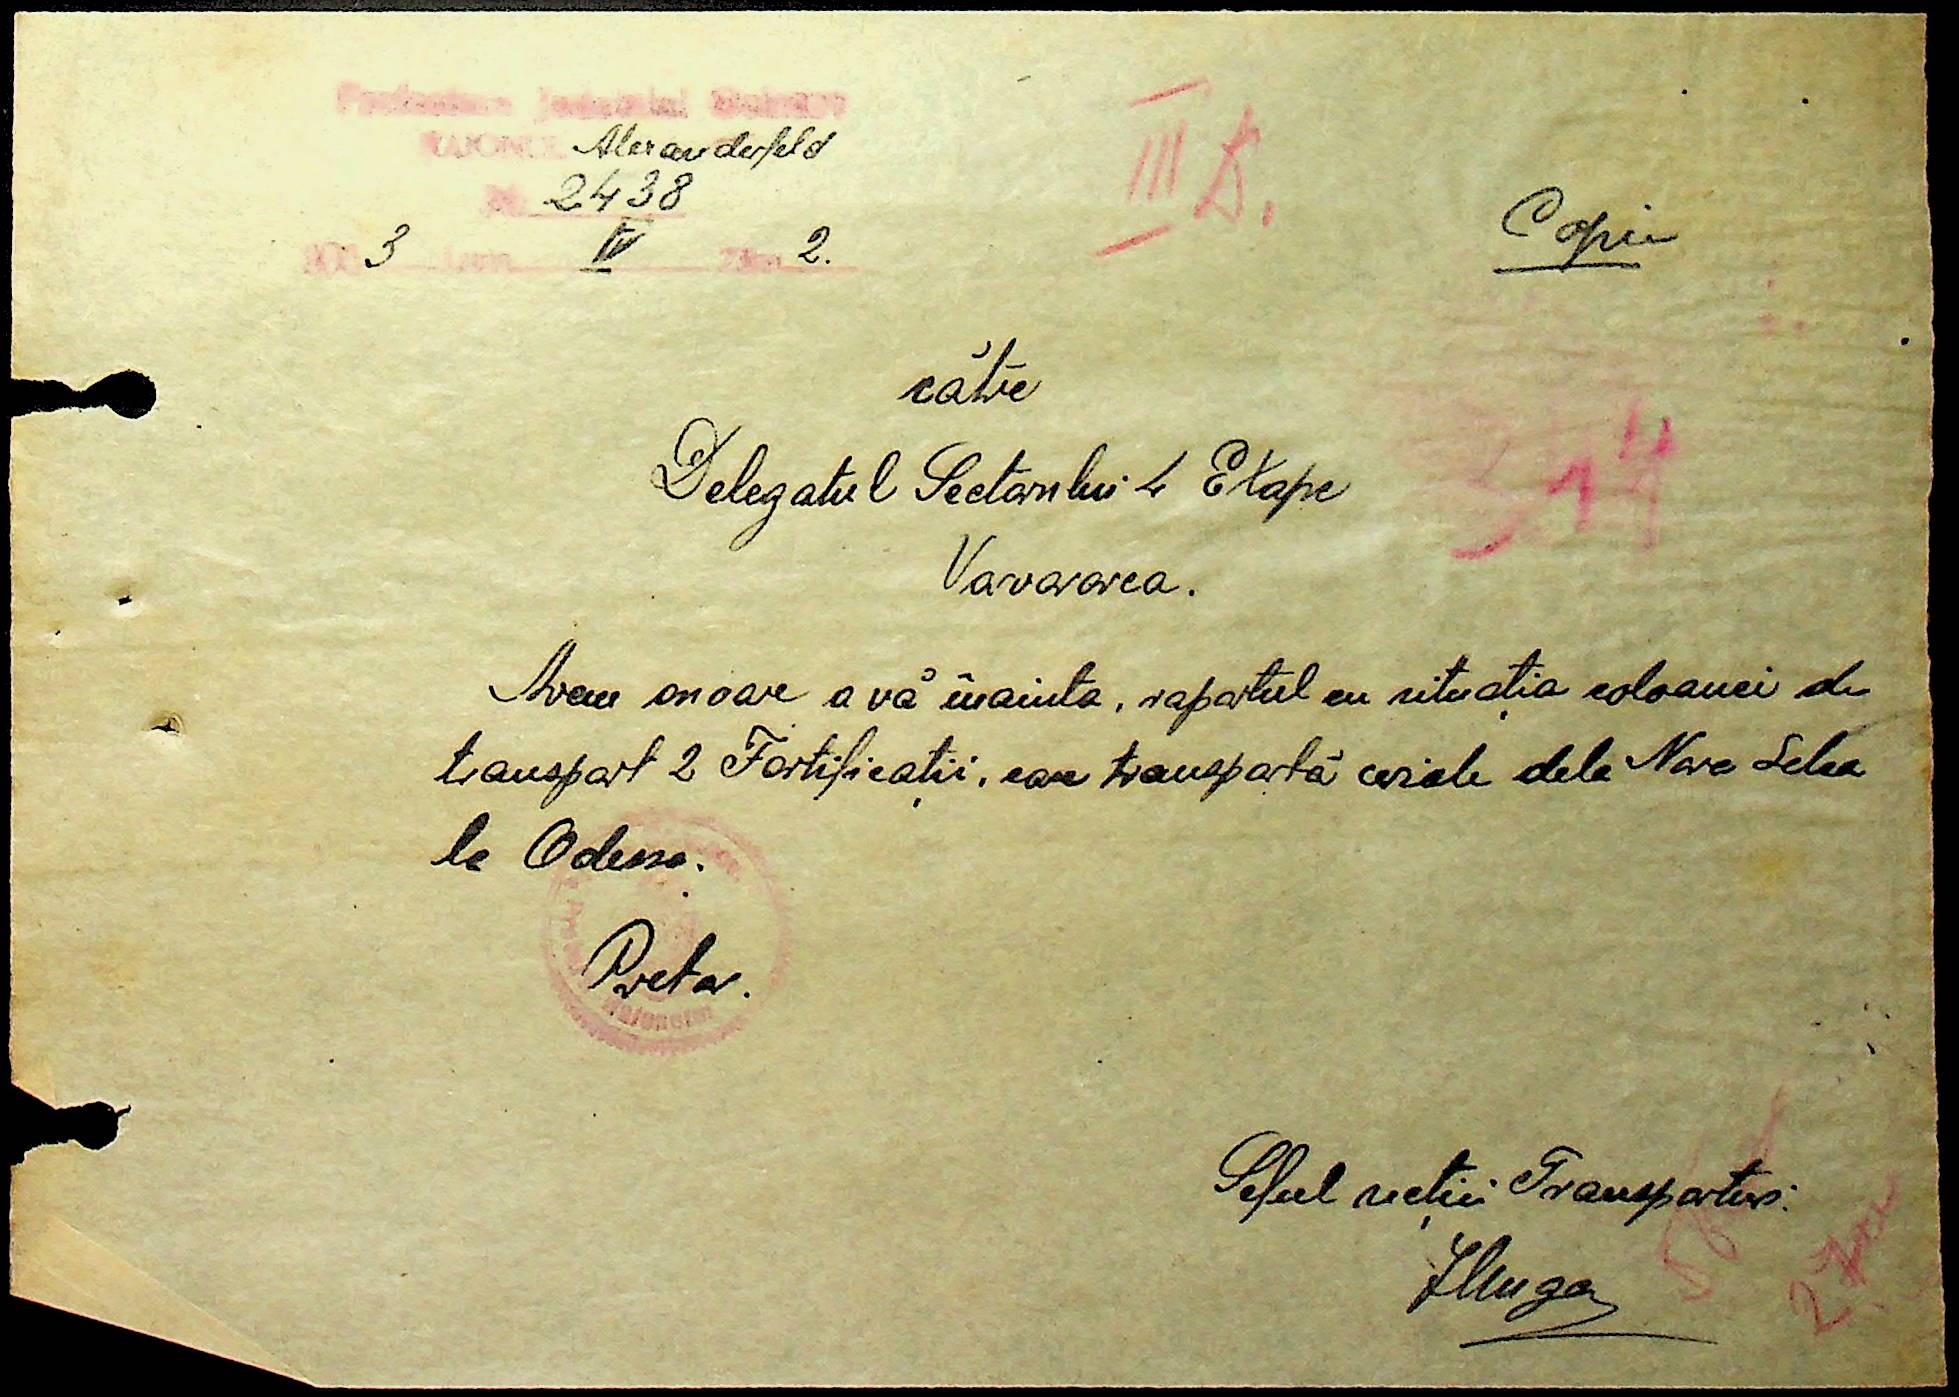 Prefectura județului
RAIONUL Alexanderfeld
No. 2438
3 Luna IV 2.
III
Copie
către
Delegatul Sectorului 4 Etape
Vavarorea.
Avem onoare a vă înainta, raportul cu situația coloanei de
transport 2 Fortificații, care transportă ceriale dela Nova Selca
la Odessa.
Pretor.
Șeful secției Transporturi: